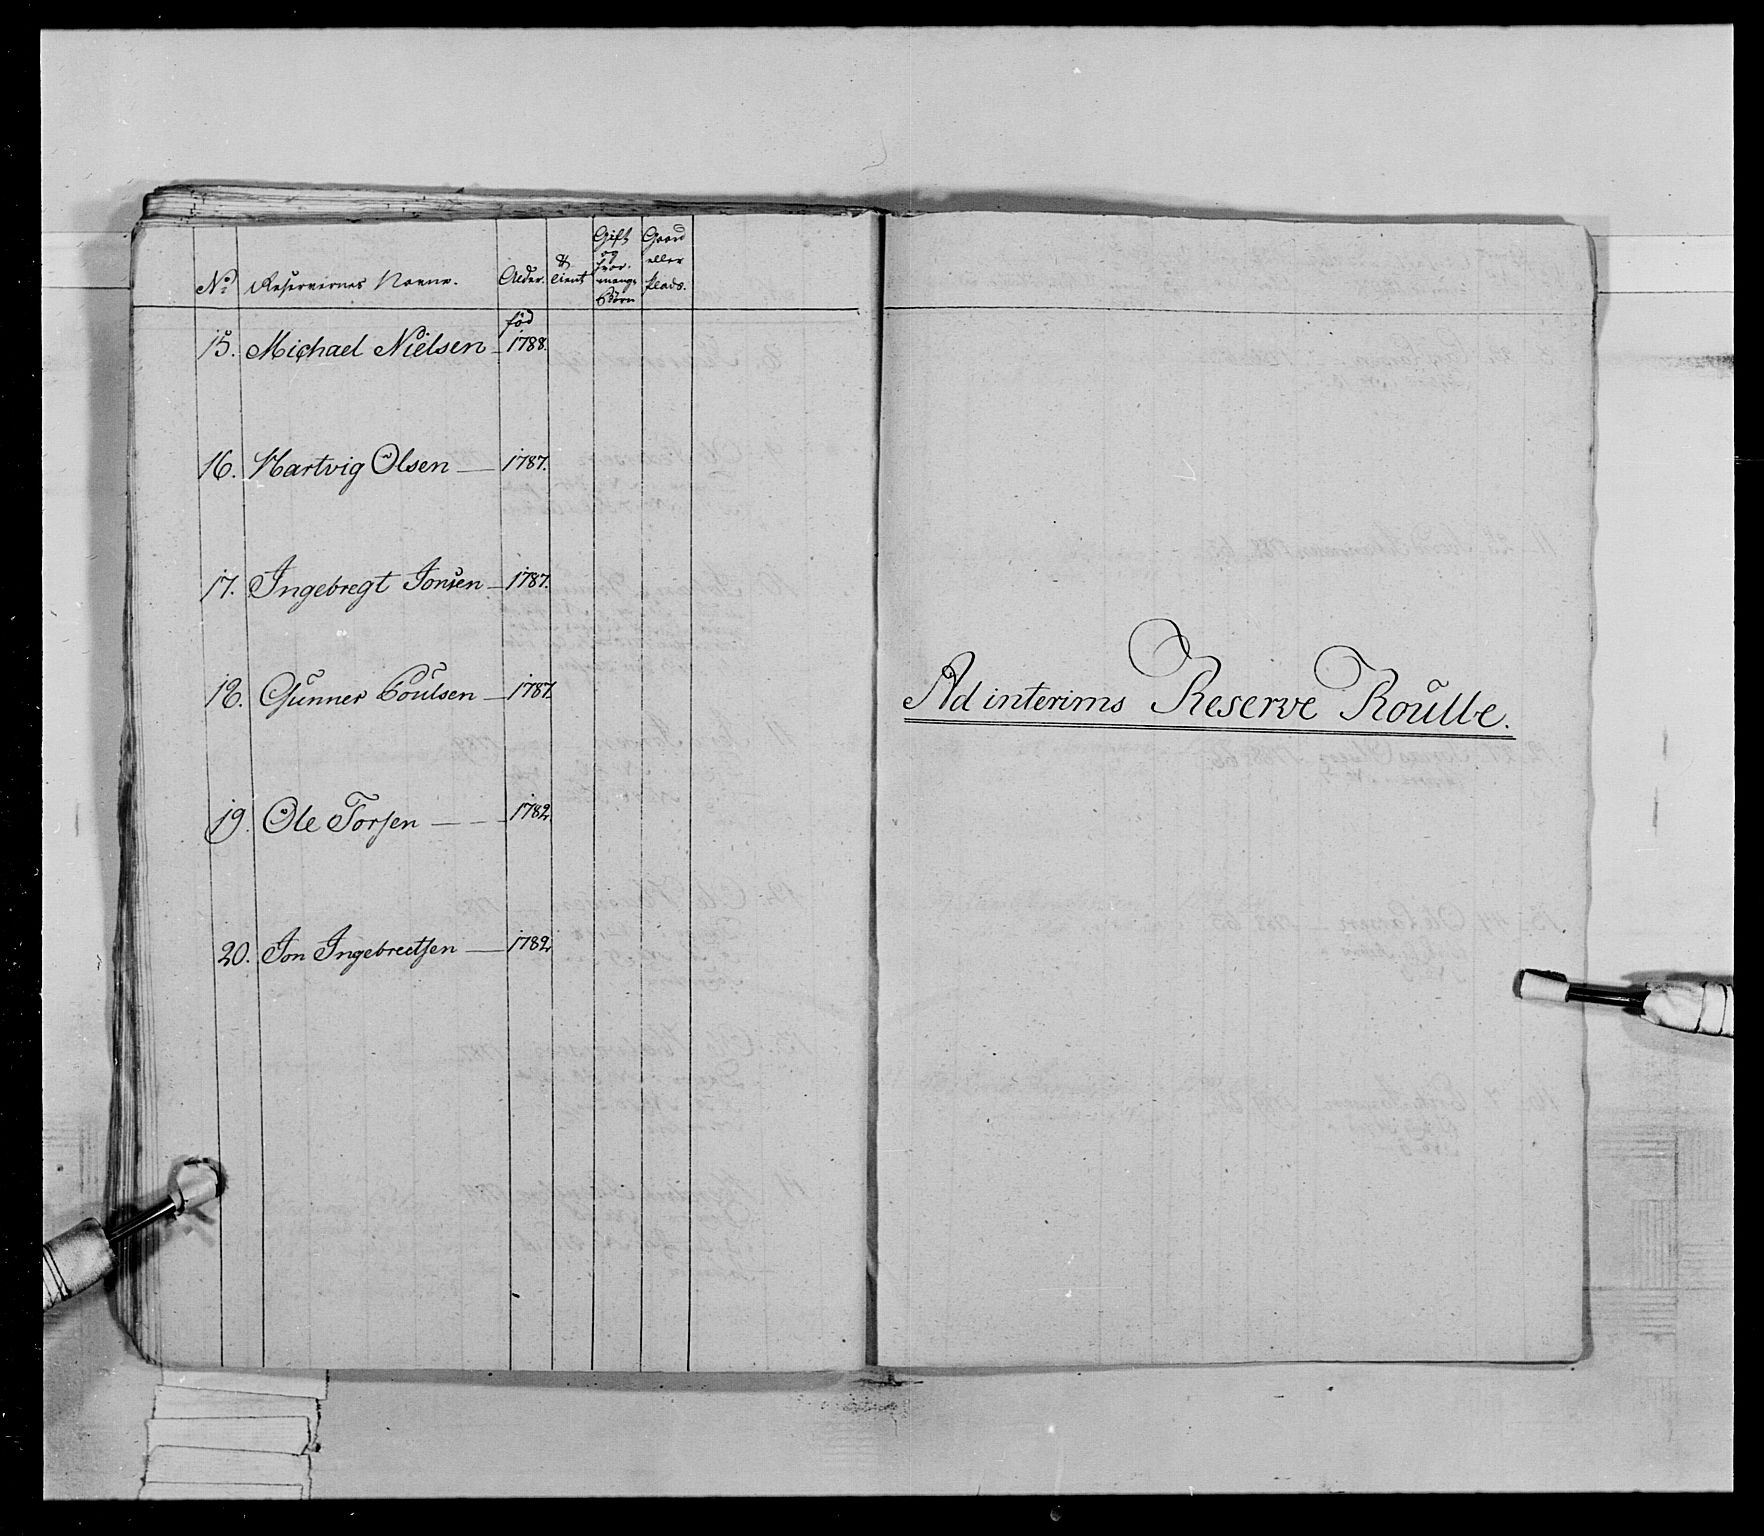 No Reservernes Navne. Alder. tient Gift og hvor mange Börn Gaard eller Plads.
föd
15. Michael Nielsen 1788.
16. Hartvig Olsen 1787.
17. Ingebregt Jonsen 1787.
18. Gunner Poulsen 1787.
19. Ole Torsen 1782.
20. Jon Ingebrectsen 1782.
Ad interims Reserve Roulle.